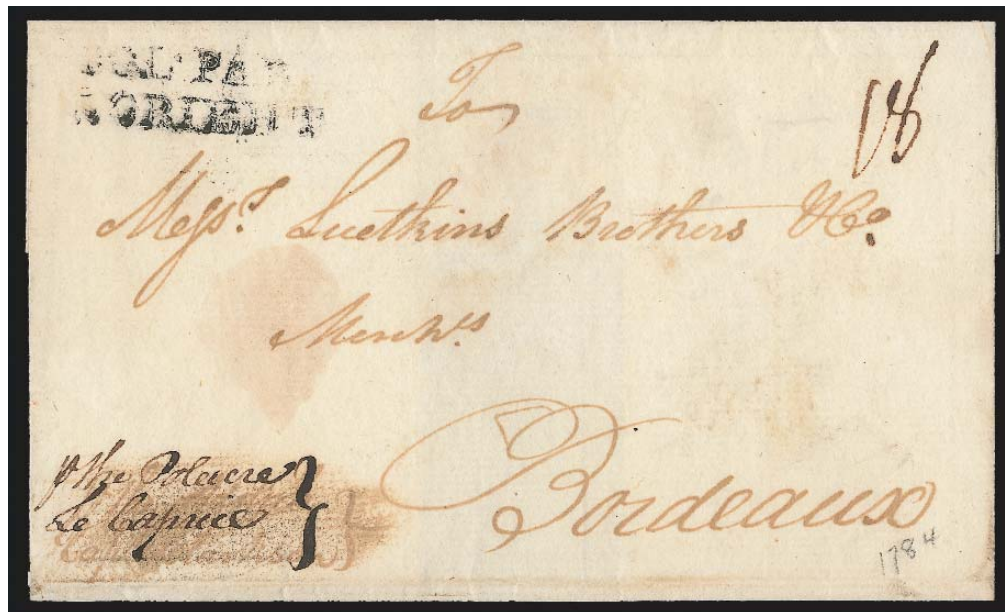 COL. PAR
LORIENT
To
18
Messrs. Luetkins Brothers & Co.
Merchts
Bordeaux
p the Polacre
Le Caprice
1784